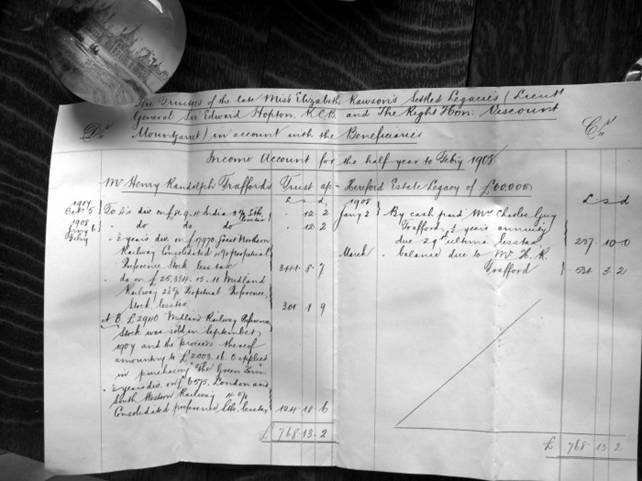 The Trustees of the late Miss Elizabeth Rawson's Settled Legacies (Lieut
General Sir Edward Hopton K.C.B. and The Right Hon. Viscount
Mountgarret) in account with the Beneficiaries
Dr
Cr
Income Account for the half year to Feby 1908
Mr Henry Randolph Trafford's Trust a/c - Herford Estate Legacy of £60000
£ s d
1907
Oct 5 To ½ div. on India 3½ Stk
12 2
1908
Jany 6 do do do
12 2
Feby - ½ years div. on £17970 Great Northern
Railway Consolidated 4% perpetual
Preference Stock less tax
344 8 7
- do on £25,354 15 11 Midland
Railway 2½% Perpetual Preference
Stock less tax
301 1 9
N.B. £2940 Midland Railway Preference
Stock was sold in September
1907 and the proceeds thereof
amounting to £2003 applied
in purchasing "The Green Farm"
- ½ years div. on £6575 London and
South Western Railway 4%
Consolidated preference Stk. less tax
124 18 6
£ 768 13 2
£ s d
1908
Jany 2 By cash paid Mr Charles Guy
Trafford ½ years annuity
due 29th ultimo less tax
237 10 0
March - balance due to Mr H. R.
Trafford
531 3 2
£ 768 13 2